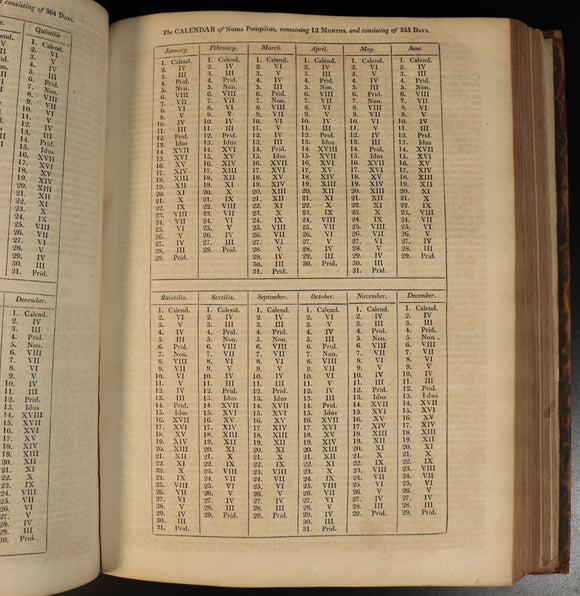 consisting of 304 DAYS.
Quintilis
1. Calend.
2. VI
3. V
4. IV
5. III
6. Prid.
7. Non.
8. VIII
9. VII
10. VI
11. V
12. IV
13. III
14. Prid.
15. Idus
16. XVII
17. XVI
18. XV
19. XIV
20. XIII
21. XII
22. XI
23. X
24. IX
25. VIII
26. VII
27. VI
28. V
29. IV
30. III
31. Prid.
December.
1. Calend.
2. IV
3. III
4. Prid.
5. Non.
6. VIII
7. VII
8. VI
9. V
10. IV
11. III
12. Prid.
13. Idus
14. XVIII
15. XVII
16. XVI
17. XV
18. XIV
19. XIII
20. XII
21. XI
22. X
23. IX
24. VIII
25. VII
26. VI
27. V
28. IV
29. III
30. Prid.
The CALENDAR of Numa Pompilius, containing 12 MONTHS, and consisting of 355 DAYS.
January. February. March. April. May. June.
1. Calend. 1. Calend. 1. Calend. 1. Calend. 1. Calend. 1. Calend.
2. IV 2. IV 2. VI 2. IV 2. VI 2. IV
3. III 3. III 3. V 3. III 3. V 3. III
4. Prid. 4. Prid. 4. IV 4. Prid. 4. IV 4. Prid.
5. Non. 5. Non. 5. III 5. Non. 5. III 5. Non.
6. VIII 6. VIII 6. Prid. 6. VIII 6. Prid. 6. VIII
7. VII 7. VII 7. Non. 7. VII 7. Non. 7. VII
8. VI 8. VI 8. VIII 8. VI 8. VIII 8. VI
9. V 9. V 9. VII 9. V 9. VII 9. V
10. IV 10. IV 10. VI 10. IV 10. VI 10. IV
11. III 11. III 11. V 11. III 11. V 11. III
12. Prid. 12. Prid. 12. IV 12. Prid. 12. IV 12. Prid.
13. Idus 13. Idus 13. III 13. Idus 13. III 13. Idus
14. XVII 14. XVI 14. Prid. 14. XVII 14. Prid. 14. XVII
15. XVI 15. XV 15. Idus 15. XVI 15. Idus 15. XVI
16. XV 16. XIV 16. XVII 16. XV 16. XVII 16. XV
17. XIV 17. XIII 17. XVI 17. XIV 17. XVI 17. XIV
18. XIII 18. XII 18. XV 18. XIII 18. XV 18. XIII
19. XII 19. XI 19. XIV 19. XII 19. XIV 19. XII
20. XI 20. X 20. XIII 20. XI 20. XIII 20. XI
21. X 21. IX 21. XII 21. X 21. XII 21. X
22. IX 22. VIII 22. XI 22. IX 22. XI 22. IX
23. VIII 23. VII 23. X 23. VIII 23. X 23. VIII
24. VII 24. VI 24. IX 24. VII 24. IX 24. VII
25. VI 25. V 25. VIII 25. VI 25. VIII 25. VI
26. V 26. IV 26. VII 26. V 26. VII 26. V
27. IV 27. III 27. VI 27. IV 27. VI 27. IV
28. III 28. Prid. 28. V 28. III 28. V 28. III
29. Prid. 29. IV 29. Prid. 29. IV 29. Prid.
30. III 30. III
31. Prid. 31. Prid.
Quintilis. Sextilis. September. October. November. December.
1. Calend. 1. Calend. 1. Calend. 1. Calend. 1. Calend. 1. Calend.
2. VI 2. IV 2. IV 2. VI 2. IV 2. IV
3. V 3. III 3. III 3. V 3. III 3. III
4. IV 4. Prid. 4. Prid. 4. IV 4. Prid. 4. Prid.
5. III 5. Non. 5. Non. 5. III 5. Non. 5. Non.
6. Prid. 6. VIII 6. VIII 6. Prid. 6. VIII 6. VIII
7. Non. 7. VII 7. VII 7. Non. 7. VII 7. VII
8. VIII 8. VI 8. VI 8. VIII 8. VI 8. VI
9. VII 9. V 9. V 9. VII 9. V 9. V
10. VI 10. IV 10. IV 10. VI 10. IV 10. IV
11. V 11. III 11. III 11. V 11. III 11. III
12. IV 12. Prid. 12. Prid. 12. IV 12. Prid. 12. Prid.
13. III 13. Idus 13. Idus 13. III 13. Idus 13. Idus
14. Prid. 14. XVII 14. XVII 14. Prid. 14. XVII 14. XVII
15. Idus 15. XVI 15. XVI 15. Idus 15. XVI 15. XVI
16. XVII 16. XV 16. XV 16. XVII 16. XV 16. XV
17. XVI 17. XIV 17. XIV 17. XVI 17. XIV 17. XIV
18. XV 18. XIII 18. XIII 18. XV 18. XIII 18. XIII
19. XIV 19. XII 19. XII 19. XIV 19. XII 19. XII
20. XIII 20. XI 20. XI 20. XIII 20. XI 20. XI
21. XII 21. X 21. X 21. XII 21. X 21. X
22. XI 22. IX 22. IX 22. XI 22. IX 22. IX
23. X 23. VIII 23. VIII 23. X 23. VIII 23. VIII
24. IX 24. VII 24. VII 24. IX 24. VII 24. VII
25. VIII 25. VI 25. VI 25. VIII 25. VI 25. VI
26. VII 26. V 26. V 26. VII 26. V 26. V
27. VI 27. IV 27. IV 27. VI 27. IV 27. IV
28. V 28. III 28. III 28. V 28. III 28. III
29. IV 29. Prid. 29. Prid. 29. IV 29. Prid. 29. Prid.
30. III 30. III
31. Prid. 31. Prid.